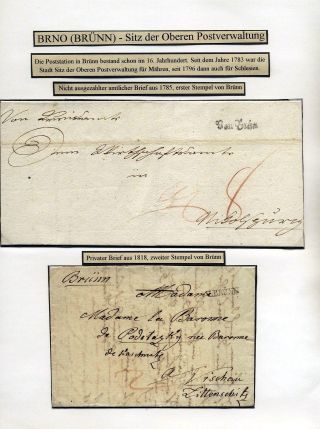 BRNO (BRÜNN) - Sitz der Oberen Postverwaltung
Die Poststation in Brünn bestand schon im 16. Jahrhundert. Seit dem Jahre 1783 war die
Stadt Sitz der Oberen Postverwaltung für Mähren, seit 1796 dann auch für Schlesien.
Nicht ausgezahlter amtlicher Brief aus 1785, erster Stempel von Brünn
Von
Von Brünn
in
Nicolspurg
Privater Brief aus 1818, zweiter Stempel von Brünn
Brünn
BRÜNN
Madame
Madame la Baronne
de Podstatzky née Baronne
de
à Wischau